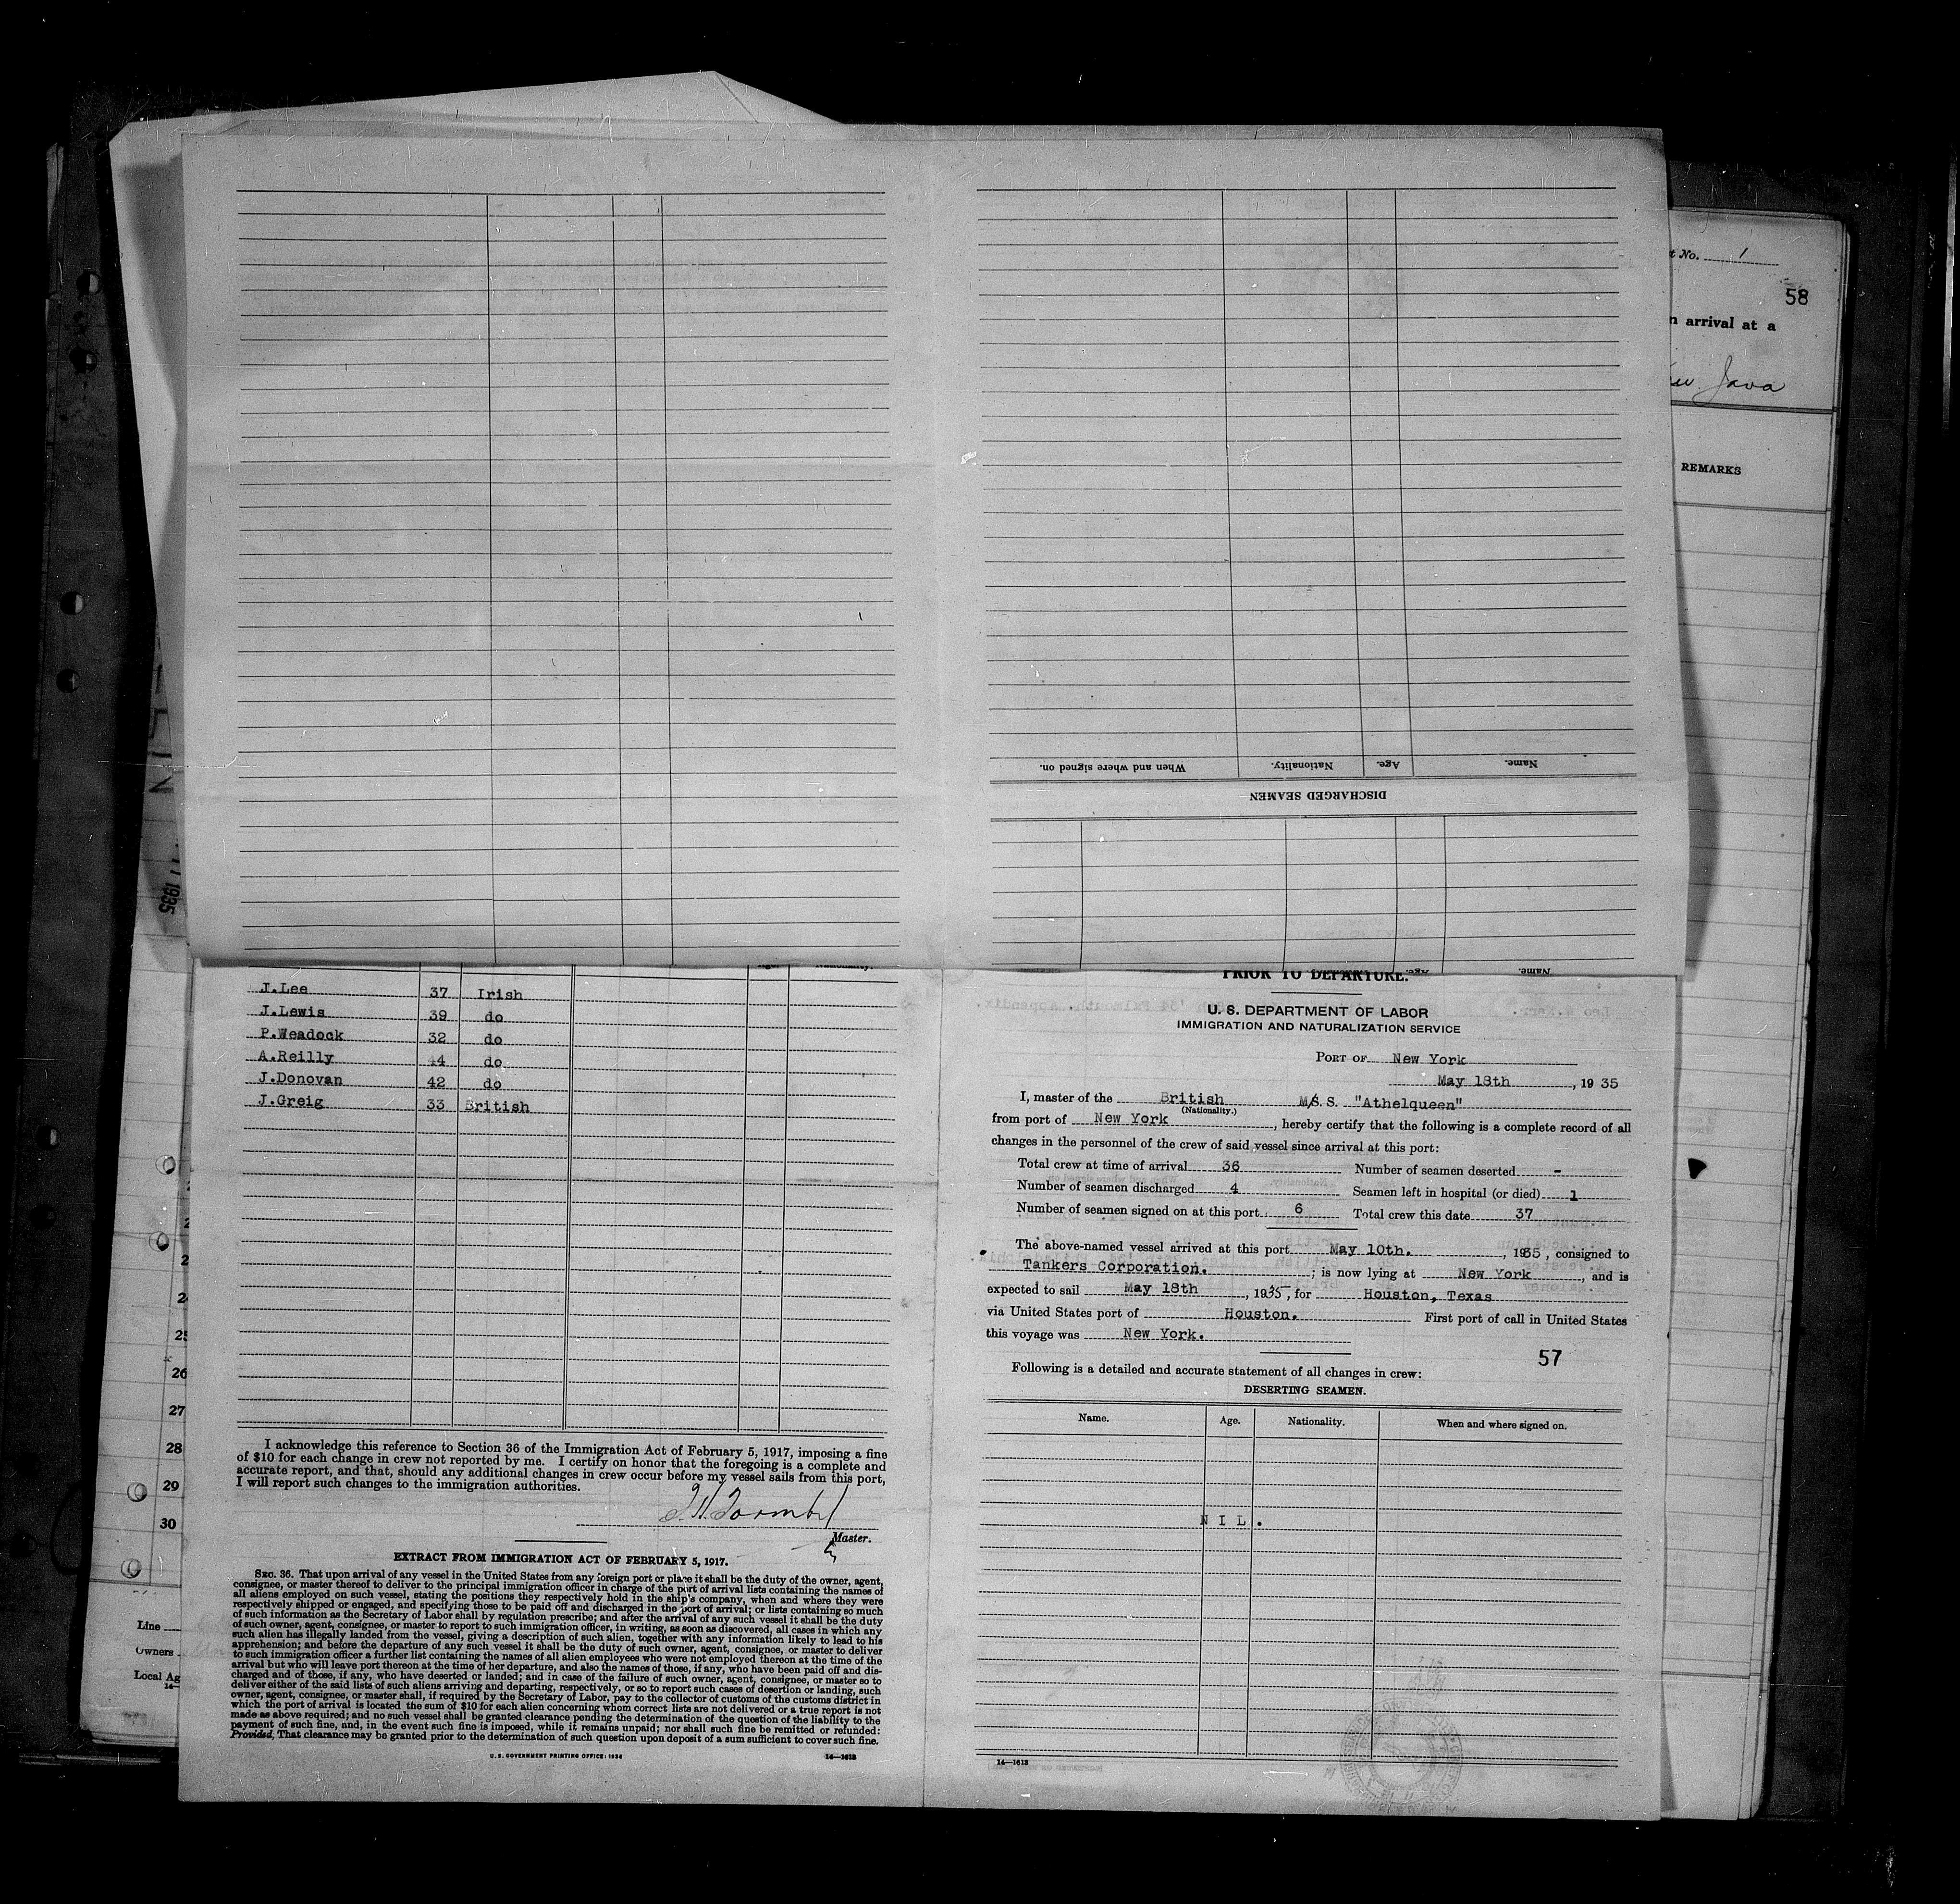 t No. 1
58
n arrival at a
Java
REMARKS
When and where signed on.
Nationality.
Age.
Name.
DISCHARGED SEAMEN
1935
J.Lee 37 Irish
J.Lewis 39 do
P.Weadock 32 do
A.Reilly 44 do
J.Donovan 42 do
J.Greig 33 British
I acknowledge this reference to Section 36 of the Immigration Act of February 5, 1917, imposing a fine
of $10 for each change in crew not reported by me. I certify on honor that the foregoing is a complete and
accurate report, and that, should any additional changes in crew occur before my vessel sails from this port,
I will report such changes to the immigration authorities.
Master.
EXTRACT FROM IMMIGRATION ACT OF FEBRUARY 5, 1917.
SEC. 36. That upon arrival of any vessel in the United States from any foreign port or place it shall be the duty of the owner, agent,
consignee, or master thereof to deliver to the principal immigration officer in charge of the port of arrival lists containing the names of
all aliens employed on such vessel, stating the positions they respectively hold in the ship's company, when and where they were
respectively shipped or engaged, and specifying those to be paid off and discharged in the port of arrival; or lists containing so much
of such information as the Secretary of Labor shall by regulation prescribe; and after the arrival of any such vessel it shall be the duty
of such owner, agent, consignee, or master to report to such immigration officer, in writing, as soon as discovered, all cases in which any
such alien has illegally landed from the vessel, giving a description of such alien, together with any information likely to lead to his
apprehension; and before the departure of any such vessel it shall be the duty of such owner, agent, consignee, or master to deliver
to such immigration officer a further list containing the names of all alien employees who were not employed thereon at the time of the
arrival but who will leave port thereon at the time of her departure, and also the names of those, if any, who have been paid off and dis-
charged and of those, if any, who have deserted or landed; and in case of the failure of such owner, agent, consignee, or master so to
deliver either of the said lists of such aliens arriving and departing, respectively, or so to report such cases of desertion or landing, such
owner, agent, consignee, or master shall, if required by the Secretary of Labor, pay to the collector of customs of the customs district in
which the port of arrival is located the sum of $10 for each alien concerning whom correct lists are not delivered or a true report is not
made as above required; and no such vessel shall be granted clearance pending the determination of the question of the liability to the
payment of such fine, and, in the event such fine is imposed, while it remains unpaid; nor shall such fine be remitted or refunded:
Provided, That clearance may be granted prior to the determination of such question upon deposit of a sum sufficient to cover such fine.
U. S. GOVERNMENT PRINTING OFFICE: 1934 14—1613
PRIOR TO DEPARTURE.
U. S. DEPARTMENT OF LABOR
IMMIGRATION AND NATURALIZATION SERVICE
PORT OF New York
May 18th, 1935
I, master of the British M/S. S. "Athelqueen"
(Nationality.)
from port of New York, hereby certify that the following is a complete record of all
changes in the personnel of the crew of said vessel since arrival at this port:
Total crew at time of arrival 36 Number of seamen deserted -
Number of seamen discharged 4 Seamen left in hospital (or died) 1
Number of seamen signed on at this port 6 Total crew this date 37
The above-named vessel arrived at this port May 10th., 1935, consigned to
Tankers Corporation.; is now lying at New York, and is
expected to sail May 18th, 1935, for Houston, Texas
via United States port of Houston. First port of call in United States
this voyage was New York.
57
Following is a detailed and accurate statement of all changes in crew:
DESERTING SEAMEN.
Name. Age. Nationality. When and where signed on.
N I L .
14—1613
25
26
27
28
29
30
Line
Owners
Local Ag